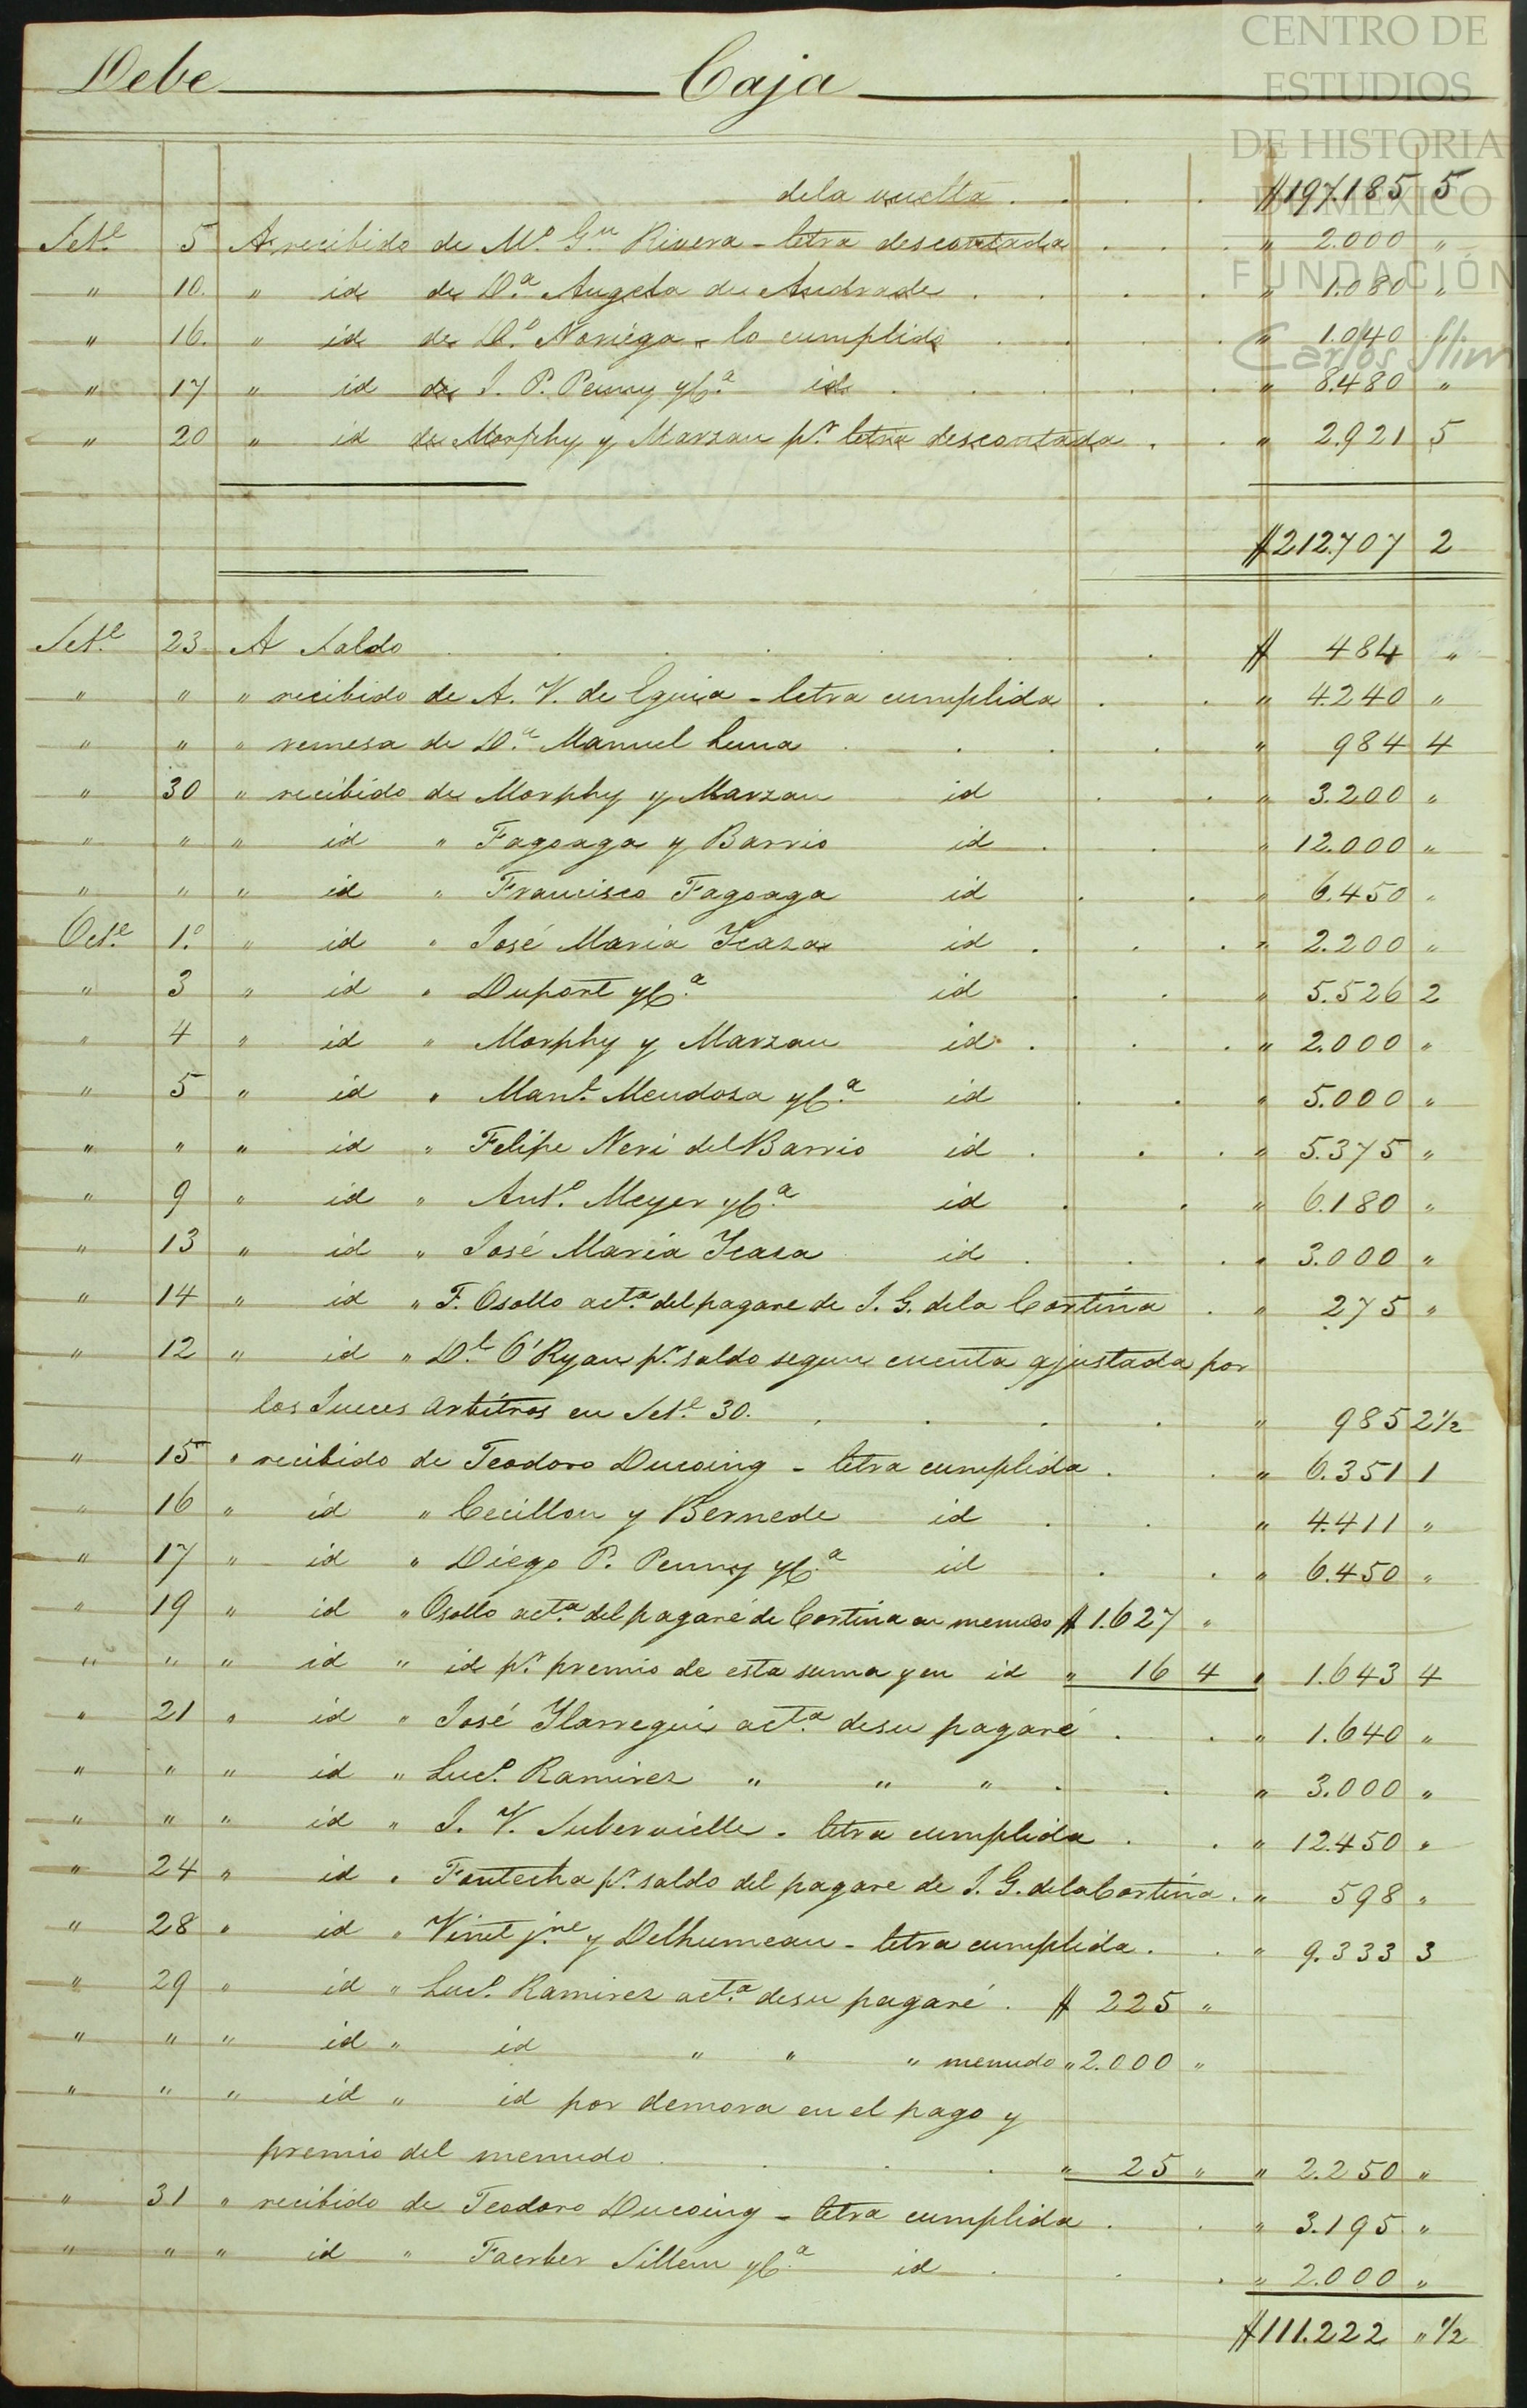 CENTRO DE
ESTUDIOS
DE HISTORIA
DE MÉXICO
FUNDACIÓN
Carlos Slim
Debe Caja
dela vuelta . . . $197.185 5
Set.e 5 A recibido de M.o G.n Rivera - letra descontada . . . " 2.000 "
" 10. " id de D.a Angela de Andrade . . . " 1.080 "
" 16. " id de D.o Noriega - lo cumplido . . . " 1.040 "
" 17 " id de J. P. Penny yC.a id . . . " 8.480 "
" 20 " id de Morphy y Marzan p.r letra descontada . . " 2.921 5
$212.707 2
Set.e 23 A Saldo . . . $ 484 "
" " " recibido de A. V. de Eguia - letra cumplida . . " 4.240 "
" " " remesa de D.n Manuel Luna . . . " 984 4
" 30 " recibido de Morphy y Marzan id . . " 3.200 "
" " " id " Fagoaga y Barrio id . . " 12.000 "
" " " id " Francisco Fagoaga id . . " 6.450 "
Oct.e 1.o " id " José Maria Ycaza id . . . " 2.200 "
" 3 " id " Duport yC.a id . . " 5.526 2
" 4 " id " Morphy y Marzan id . . . " 2.000 "
" 5 " id " Man.l Mendoza yC.a id . . " 5.000 "
" " " id " Felipe Neri del Barrio id . . . " 5.375 "
" 9 " id " Ant.o Meyer yC.a id . . " 6.180 "
" 13 " id " José Maria Ycaza id . . . " 3.000 "
" 14 " id " F. Osollo act.a del pagare de J. G. dela Cortina . " 275 "
" 12 " id " D.l O'Ryan p.r saldo segun cuenta ajustada por
los Jueces arbitros en Set.e 30. . . . " 985 2 1/2
" 15 " recibido de Teodoro Ducoing - letra cumplida . . " 6.351 1
" 16 " id " Cecillon y Bernede id . . " 4.411 "
" 17 " id " Diego P. Penny yC.a id . . " 6.450 "
" 19 " id " Osollo act.a del pagaré de Cortina en menudo $ 1.627 "
" " " id " id p.r premio de esta suma y en id " 16 4 " 1.643 4
" 21 " id " José Ylarregui act.a desu pagaré . . " 1.640 "
" " " id " Luc.o Ramirez " " " . . " 3.000 "
" " " id " J. V. Subervielle - letra cumplida . . " 12.450 "
" 24 " id " Fontecha p.r saldo del pagare de J. G. delaCortina . " 598 "
" 28 " id " Vinet j.ne y Delhumeau - letra cumplida . . " 9.333 3
" 29 " id " Luc.o Ramirez act.a desu pagaré . $ 225 "
" " " id " id " " " menudo " 2.000 "
" " " id " id por demora en el pago y
premio del menudo . . . " 25 " " 2.250 "
" 31 " recibido de Teodoro Ducoing - letra cumplida . . " 3.195 "
" " " id " Faerber Sillem yC.a id . . . " 2.000 "
$111.222 " 1/2